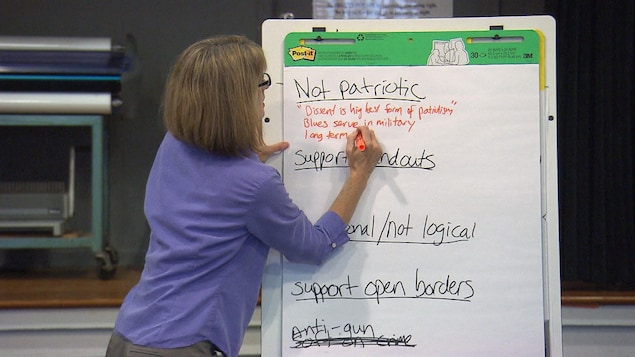 Post-it
30
3M
Not patriotic
"Dissent is highest form of patriotism"
Blues serve in military
long term
support andouts
nal/not logical
support open borders
Anti-gun
soft on crime